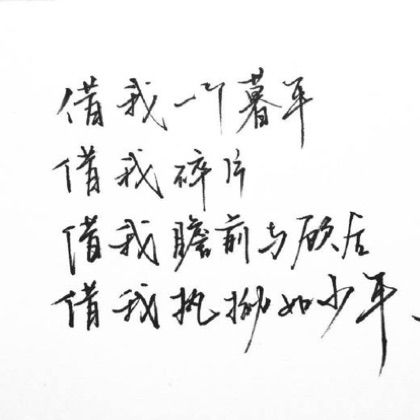 借我一个暮年
借我碎片
借我瞻前与顾后
借我执拗如少年、